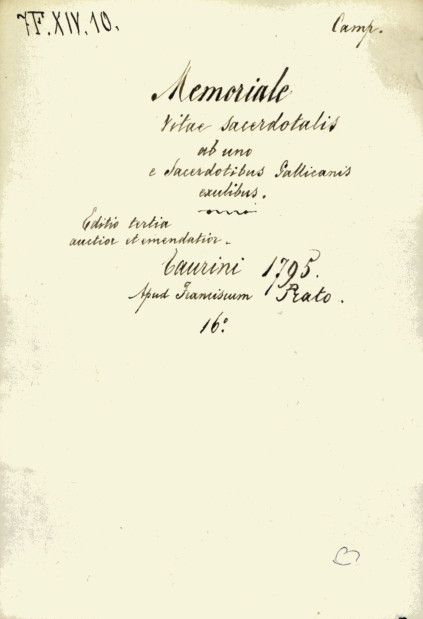 7F.XIV.10.
Camp.
Memoriale
Vitae sacerdotalis
ab uno
e Sacerdotibus Gallicanis
exulibus.
Editio tertia
auctior et emendatior.
Taurini 1795.
Apud Franciscum Prato.
16º